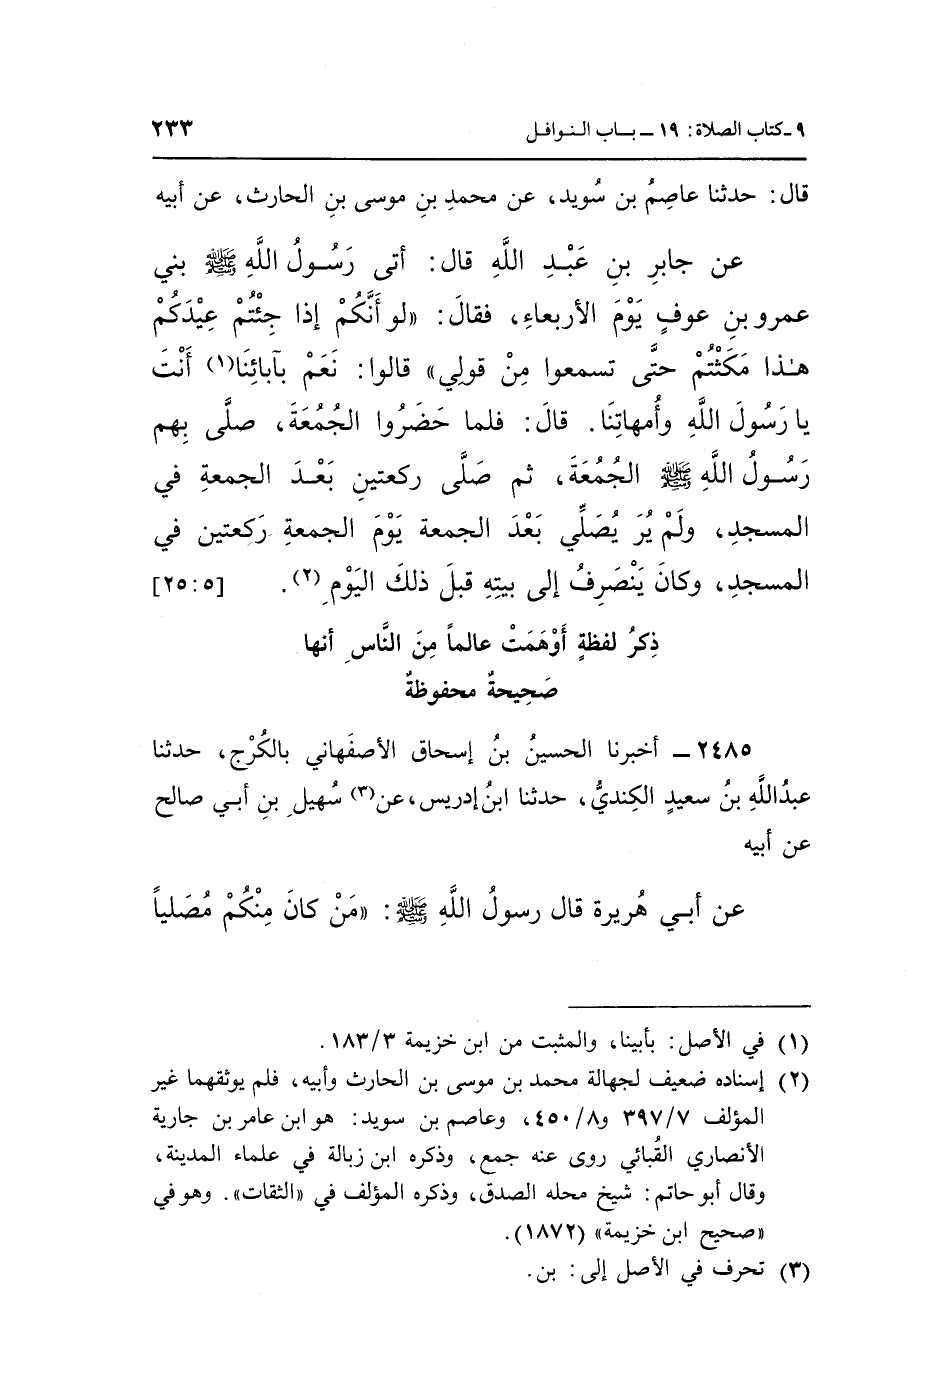 ٩ ـ كتاب الصلاة: ١٩ ـ بـاب النـوافـل ٢٣٣
قال: حدثنا عاصِمُ بن سُويد، عن محمدِ بنِ موسى بنِ الحارث، عن أبيه
عن جابرِ بنِ عَبْـدِ اللَّهِ قال: أتى رَسُـولُ اللَّهِ ﷺ بني
عمرو بنِ عوفٍ يَوْمَ الأربعاءِ، فقالَ: «لو أَنَّكُمْ إذا جِئْتُمْ عِيْدَكُمْ
هـٰذا مَكَثْتُمْ حتَّى تسمعوا مِنْ قولِي» قالوا: نَعَمْ بآبائِنَا(١) أَنْتَ
يا رَسُولَ اللَّهِ وأُمهاتِنَا. قالَ: فلما حَضَرُوا الجُمُعَةَ، صلَّى بِهم
رَسُـولُ اللَّهِ ﷺ الجُمُعَةَ، ثم صَلَّى ركعتينِ بَعْـدَ الجمعةِ في
المسجدِ، ولَمْ يُرَ يُصَلِّي بَعْدَ الجمعة يَوْمَ الجمعةِ رَكعتين في
المسجدِ، وكانَ يَنْصَرِفُ إلى بيتِهِ قبلَ ذلكَ اليَوْمِ(٢). [٥: ٢٥]
ذِكرُ لفظةٍ أَوْهَمَتْ عالماً مِنَ النَّاسِ أنها
صَحِيحةٌ محفوظةٌ
٢٤٨٥ ـ أخبرنا الحسينُ بنُ إسحاق الأصفَهاني بالكُرْج، حدثنا
عبدُاللَّهِ بنُ سعيدٍ الكِنديُّ، حدثنا ابنُ إدريس، عن(٣) سُهيل بنِ أبـي صالح
عن أبيه
عن أبـي هُريرة قال رسولُ اللَّهِ ﷺ: «مَنْ كانَ مِنْكُمْ مُصَلياً
(١) في الأصل: بأبينا، والمثبت من ابن خزيمة ١٨٣/٣.
(٢) إسناده ضعيف لجهالة محمد بن موسى بن الحارث وأبيه، فلم يوثقهما غير
المؤلف ٣٩٧/٧ و٤٥٠/٨، وعاصم بن سويد: هو ابن عامر بن جارية
الأنصاري القُبائي روى عنه جمع، وذكره ابن زبالة في علماء المدينة،
وقال أبو حاتم: شيخ محله الصدق، وذكره المؤلف في «الثقات». وهو في
«صحيح ابن خزيمة» (١٨٧٢).
(٣) تحرف في الأصل إلى: بن.